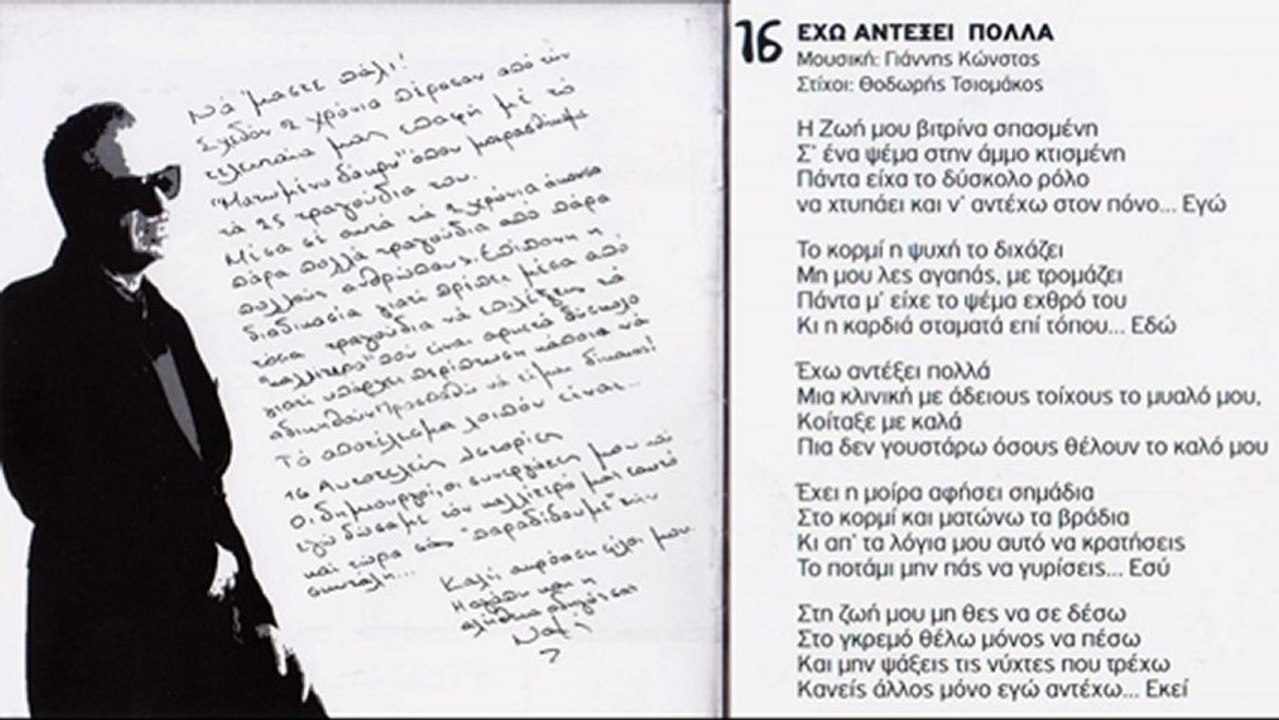 Νά 'μαστε πάλι!
Σχεδόν 2 χρόνια πέρασαν από την
τελευταία μας επαφή μέ τό
"Ματωμένο δάκρυ" όπου μαρασθήκαμε
τά 25 τραγούδια του.
Μέσα σέ αυτά τά 2 χρόνια άκουσα
πάρα πολλά τραγούδια από πάρα
πολλούς ανθρώπους. Επίπονη η
διαδικασία γιατί πρέπει μέσα από
τόσα τραγούδια νά επιλέξεις τά
"καλλίτερα" πού είναι αρκετά δύσκολο
γιατί υπάρχει περίπτωση κάποια νά
αδικηθούν. Προσπαθώ νά είμαι δίκαιος!
Τό αποτέλεσμα λοιπόν είναι...
16 Αυτοτελείς Ιστορίες
Οι δημιουργοί, οι συνεργάτες μου καί
εγώ δώσαμε τόν καλλίτερό μας εαυτό
καί τώρα σάς "παραδίδουμε" τήν
σκυτάλη...
Καλή ακρόαση φίλοι μου
Η αγάπη και η
αλήθεια οδηγός σας
16 ΕΧΩ ΑΝΤΕΞΕΙ ΠΟΛΛΑ
Μουσική: Γιάννης Κώνστας
Στίχοι: Θοδωρής Τσιομάκος
Η Ζωή μου βιτρίνα σπασμένη
Σ' ένα ψέμα στην άμμο κτισμένη
Πάντα είχα το δύσκολο ρόλο
να χτυπάει και ν' αντέχω στον πόνο... Εγώ
Το κορμί η ψυχή το διχάζει
Μη μου λες αγαπάς, με τρομάζει
Πάντα μ' είχε το ψέμα εχθρό του
Κι η καρδιά σταματά επί τόπου... Εδώ
Έχω αντέξει πολλά
Μια κλινική με άδειους τοίχους το μυαλό μου,
Κοίταξε με καλά
Πια δεν γουστάρω όσους θέλουν το καλό μου
Έχει η μοίρα αφήσει σημάδια
Στο κορμί και ματώνω τα βράδια
Κι απ' τα λόγια μου αυτό να κρατήσεις
Το ποτάμι μην πάς να γυρίσεις... Εσύ
Στη ζωή μου μη θες να σε δέσω
Στο γκρεμό θέλω μόνος να πέσω
Και μην ψάξεις τις νύχτες που τρέχω
Κανείς άλλος μόνο εγώ αντέχω... Εκεί